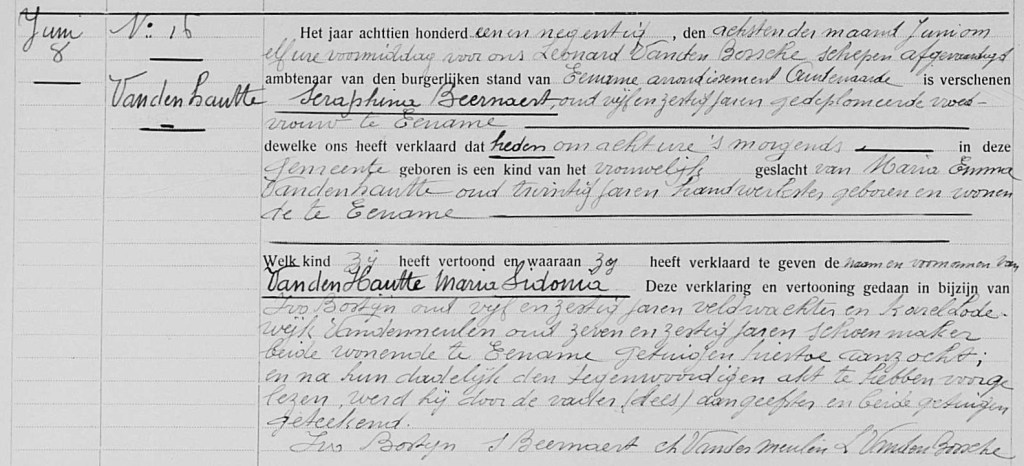 Juni
8
N: 15
Vandenhautte
Het jaar achttien honderd een en negentig, den achsten der maand Juni om
elf ure voormiddag voor ons Leonard Vanden Bossche schepen afgevaardigd
ambtenaar van den burgerlijken stand van Eename arrondissement Audenaarde is verschenen
Seraphina Beernaert, oud vijf en zestig jaren gediplomeerde vroed-
vrouw te Eename
dewelke ons heeft verklaard dat heden om acht ure 's morgends in deze
gemeente geboren is een kind van het vrouwelijk geslacht van Maria Emma
Vandenhautte oud twintig jaren handwerkster geboren en wonen
de te Eename
Welk kind zy heeft vertoond en waaraan zy heeft verklaard te geven de naam en voornamen van
Vanden Hautte Maria Sidonia Deze verklaring en vertooning gedaan in bijzijn van
Ivo Bostyn oud vijf en zestig jaren veldwachter en Karel Lode-
wijk Vandermeulen oud zeven en zestig jaren schoenmaker
beide wonende te Eename getuigen hiertoe aanzocht;
en na hun dadelijk den tegenwoordigen akt te hebben voorge
lezen, werd hij door de vader (dees) aangeefster en beide getuigen
geteekend.
Ivo Bostyn S Beernaert ch Vander meulen L Vanden Bossche